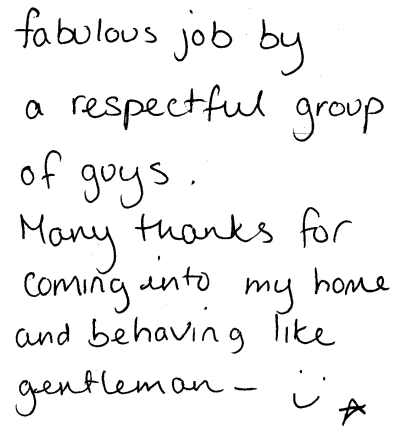 fabulous job by
a respectful group
of guys.
Many thanks for
coming into my home
and behaving like
gentleman –